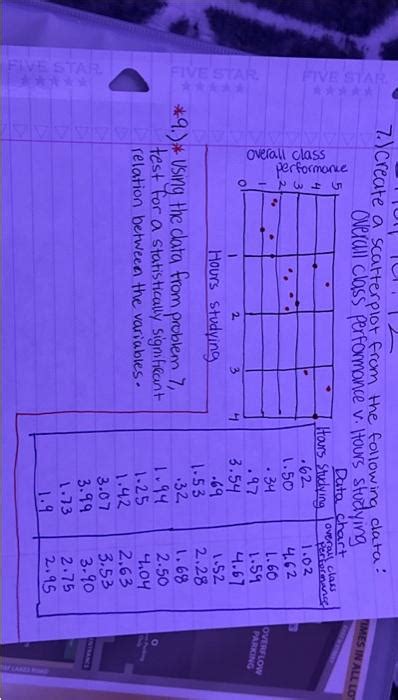 7.) Create a scatterplot from the following data:
Overall class performance v. Hours studying
Data chart
Hours Studying overall class performance
.62 1.02
1.50 4.62
.34 1.60
.97 1.59
3.54 4.67
.69 1.52
1.53 2.28
.32 1.68
1.44 2.50
1.25 4.04
1.42 2.63
3.07 3.53
3.99 3.90
1.73 2.75
1.9 2.95
overall class
performance
5
4
3
2
1
0
1 2 3 4
Hours studying
*9.)* Using the data from problem 7,
test for a statistically significant
relation between the variables.
FIVE STAR
FIVE STAR
FIVE STAR
OVERFLOW
PARKING